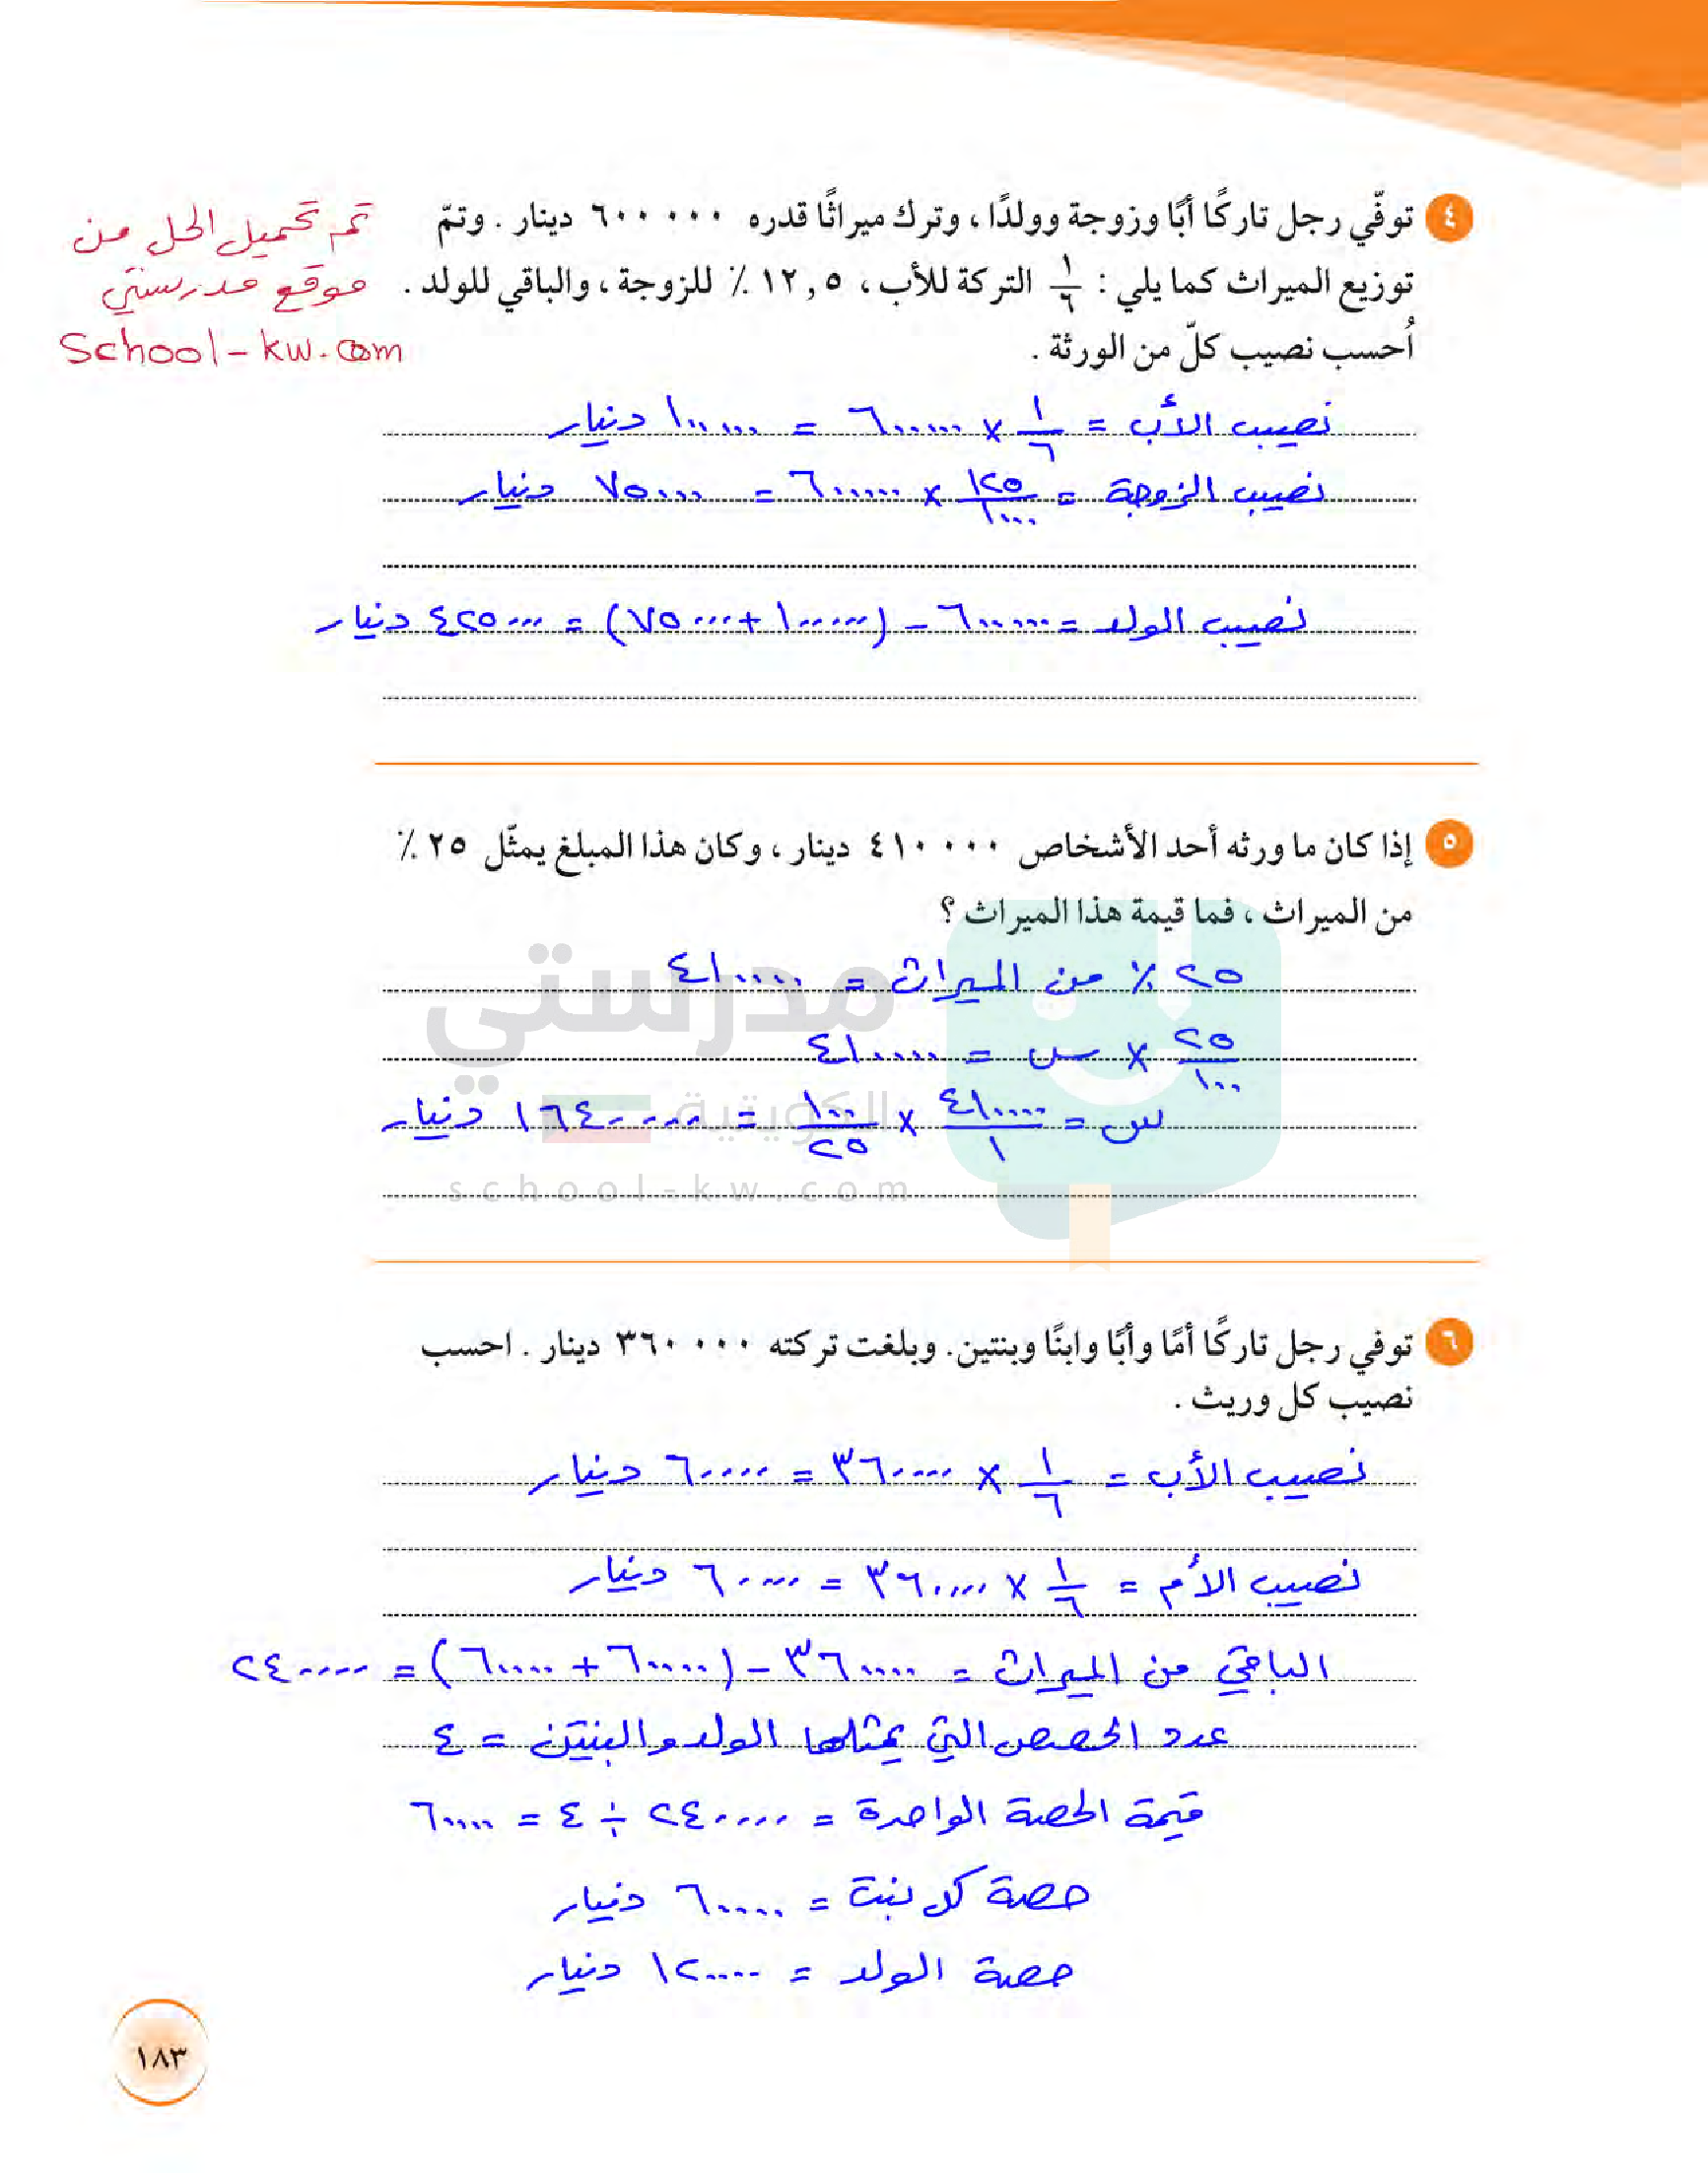 تم تحميل الحل من
موقع مدرستي
School-kw.com
٤ توفّي رجل تاركًا أبًا وزوجة وولدًا ، وترك ميراثًا قدره ٦٠٠ ٠٠٠ دينار . وتمّ
توزيع الميراث كما يلي : ١/٦ التركة للأب ، ١٢,٥ ٪ للزوجة ، والباقي للولد .
أُحسب نصيب كلّ من الورثة .
نصيب الأب = ١/٦ × ٦٠٠٠٠٠ = ١٠٠٠٠٠ دينار
نصيب الزوجة = ١٢٥/١٠٠٠ × ٦٠٠٠٠٠ = ٧٥٠٠٠ دينار
نصيب الولد = ٦٠٠٠٠٠ - (١٠٠٠٠٠ + ٧٥٠٠٠) = ٤٢٥٠٠٠ دينار
٥ إذا كان ما ورثه أحد الأشخاص ٤١٠ ٠٠٠ دينار ، وكان هذا المبلغ يمثّل ٢٥ ٪
من الميراث ، فما قيمة هذا الميراث ؟
٢٥ ٪ من الميراث = ٤١٠٠٠٠
٢٥/١٠٠ × س = ٤١٠٠٠٠
س = ٤١٠٠٠٠/١ × ١٠٠/٢٥ = ١٦٤٠٠٠٠ دينار
مدرستي
الكويتية
school-kw.com
٦ توفي رجل تاركًا أمًا وأبًا وابنًا وبنتين. وبلغت تركته ٣٦٠ ٠٠٠ دينار . احسب
نصيب كل وريث .
نصيب الأب = ١/٦ × ٣٦٠٠٠٠ = ٦٠٠٠٠ دينار
نصيب الأم = ١/٦ × ٣٦٠٠٠٠ = ٦٠٠٠٠ دينار
الباقي من الميراث = ٣٦٠٠٠٠ - (٦٠٠٠٠ + ٦٠٠٠٠) = ٢٤٠٠٠٠
عدد الحصص التي يمثلها الولد والبنتين = ٤
قيمة الحصة الواحدة = ٢٤٠٠٠٠ ÷ ٤ = ٦٠٠٠٠
حصة كل بنت = ٦٠٠٠٠ دينار
حصة الولد = ١٢٠٠٠٠ دينار
١٨٣